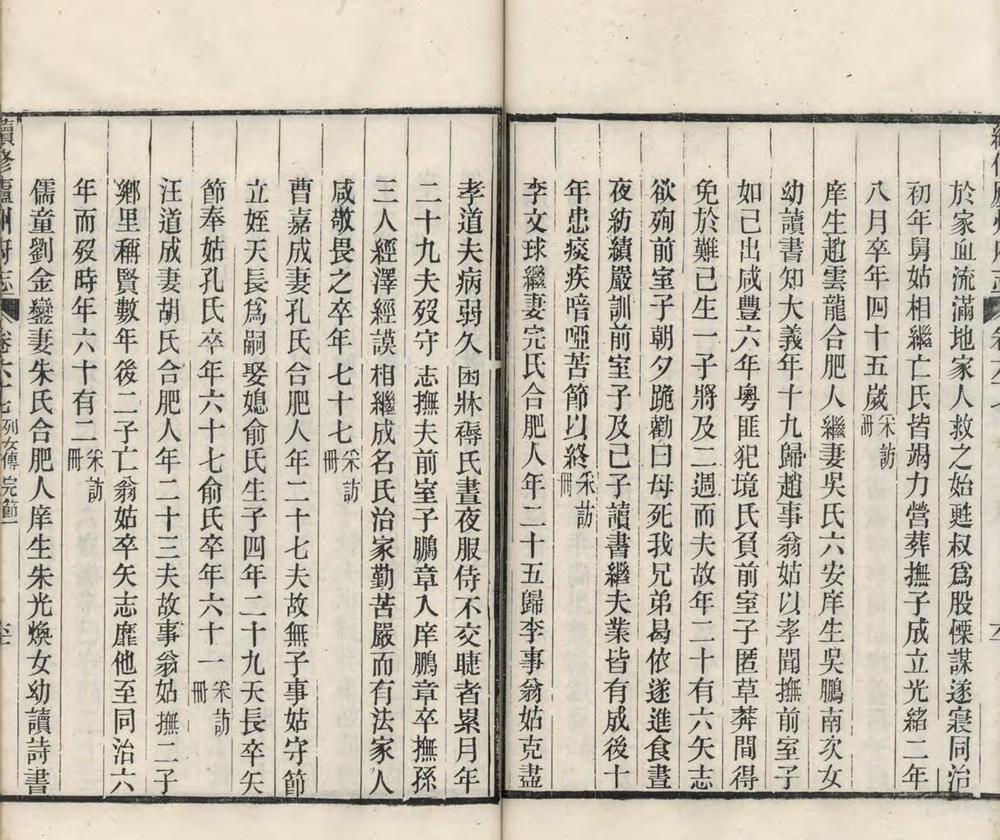 於家血流滿地家人救之始甦叔爲股慄謀遂寢同治
初年舅姑相繼亡氏皆竭力營葬撫子成立光緒二年
八月卒年四十五歲采訪冊
庠生趙雲龍合肥人繼妻吳氏六安庠生吳鵬南次女
幼讀書知大義年十九歸趙事翁姑以孝聞撫前室子
如己出咸豐六年粵匪犯境氏負前室子匿草莽間得
免於難已生一子將及二週而夫故年二十有六矢志
欲殉前室子朝夕跪勸曰母死我兄弟曷依遂進食晝
夜紡績嚴訓前室子及己子讀書繼夫業皆有成後十
年患痰疾喑啞苦節以終采訪冊
李文球繼妻完氏合肥人年二十五歸李事翁姑克盡
孝道夫病弱久困牀褥氏晝夜服侍不交睫者累月年
二十九夫歿守志撫夫前室子鵬章入庠鵬章卒撫孫
三人經澤經謨相繼成名氏治家勤苦嚴而有法家人
咸敬畏之卒年七十七采訪冊
曹嘉成妻孔氏合肥人年二十七夫故無子事姑守節
立姪天長爲嗣娶媳俞氏生子四年二十九天長卒矢
節奉姑孔氏卒年六十七俞氏卒年六十一采訪冊
汪道成妻胡氏合肥人年二十三夫故事翁姑撫二子
鄉里稱賢數年後二子亡翁姑卒矢志靡他至同治六
年而歿時年六十有二采訪冊
儒童劉金鑾妻朱氏合肥人庠生朱光煥女幼讀詩書
續修廬州府志 卷六十七列女傳完節一